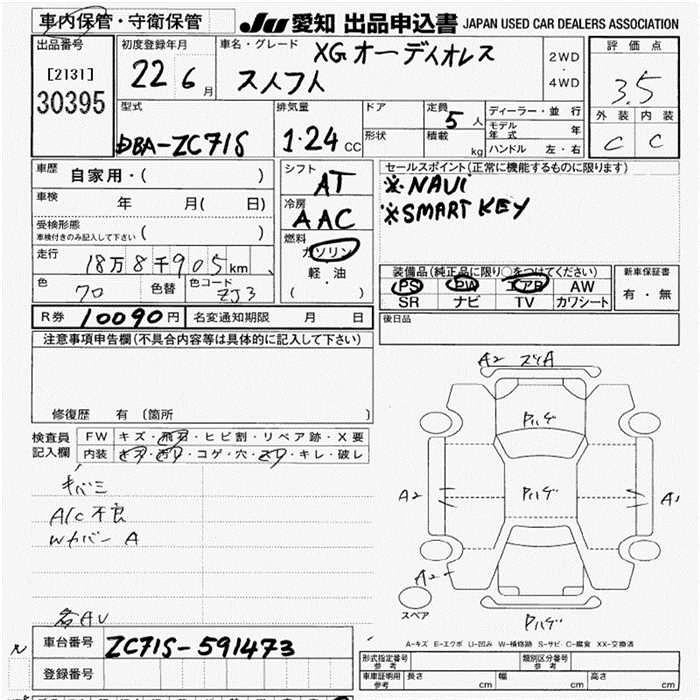 車内保管・守衛保管 JU 愛知 出品申込書 JAPAN USED CAR DEALERS ASSOCIATION
出品番号 [2131] 30395
初度登録年月 22 6月
車名・グレード XG オーディオレス スイフト
2WD・4WD
評価点 3.5
外装 内装 C C
型式 DBA-ZC71S
排気量 1.24 CC
ドア 形状
定員 5人 積載 kg
ディーラー・並行
モデル年式 年
ハンドル 左・右
車歴 自家用・( )
車検 年 月( 日)
受検形態 車検付きのみ記入して下さい ( )
走行 18万8千905km
色 70 色替 色コード ZJ3
シフト AT
冷房 AAC
燃料 ガソリン
軽・油
( )
セールスポイント(正常に機能するものに限ります)
※NAVI
※SMART KEY
装備品(純正品に限り〇をつけてください)
PS PW エアB AW
SR ナビ TV カワシート
新車保証書 有・無
R券 10090円 名変通知期限 月 日
後日品
注意事項申告欄(不具合内容等は具体的に記入して下さい)
修復歴 有 〔箇所 〕
検査員記入欄
FW キズ・飛石・ヒビ割・リペア跡・X要
内装 キズ・汚れ・コゲ・穴・スレ・キレ・破レ
キバミ
A/C不良
Wカバー A
各AU
A2 ズレA
Pハゲ
A2 Pハゲ A1
A2
スペア Pハゲ
A-キズ E-エクボ U-凹み W-補修跡 S-サビ C-腐食 XX-交換済
車台番号 ZC71S-591473
登録番号
形式指定番号 参考 類別区分番号 参考
車庫証明用 参考 長さ cm 幅 cm 高さ cm